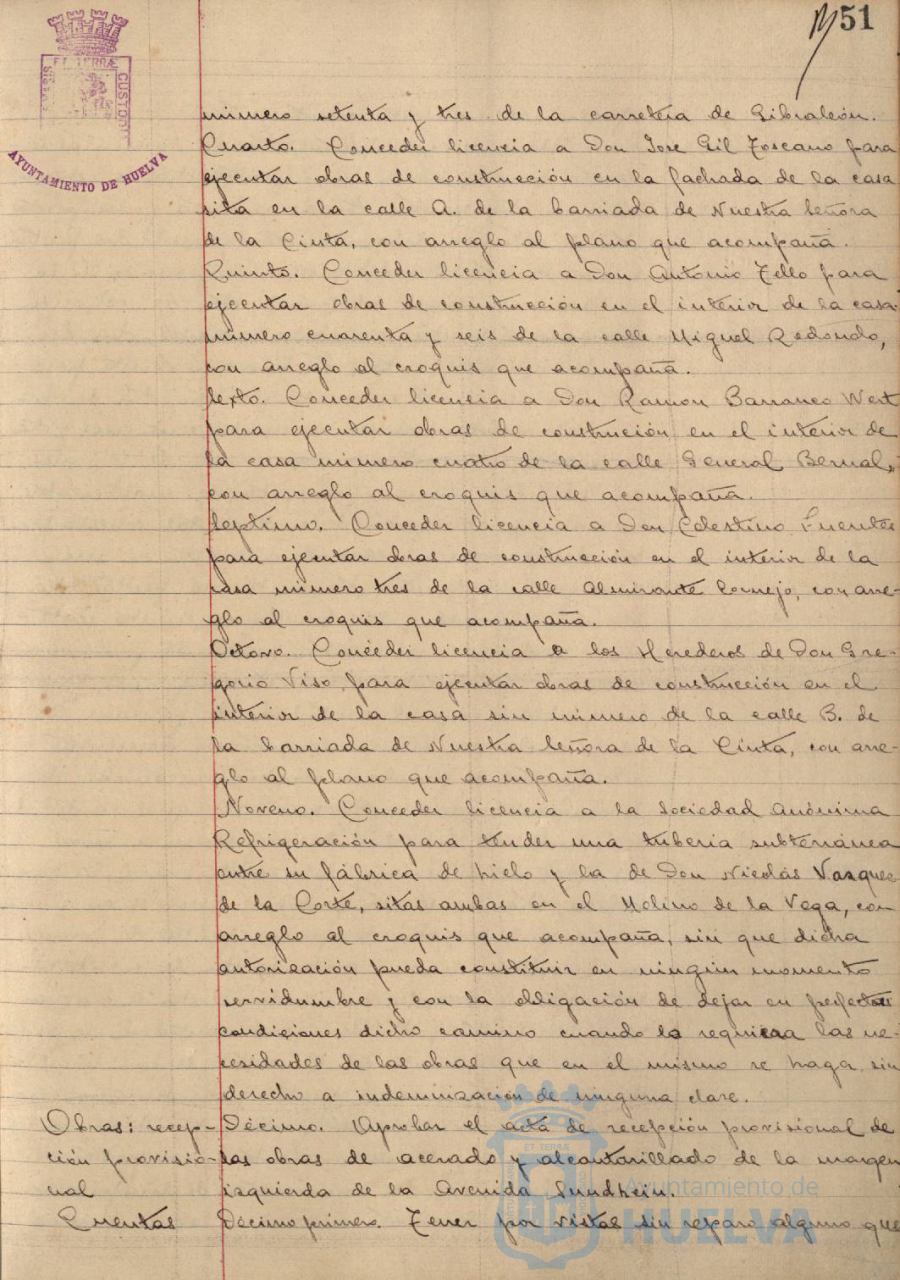 51
ET TERRÆ
CUSTO
AYUNTAMIENTO DE HUELVA
número setenta y tres de la carretera de Gibraleón.
Cuarto. Conceder licencia a Don Jose Gil Toscano para
ejecutar obras de construcción en la fachada de la casa
sita en la calle A. de la barriada de Nuestra Señora
de la Cinta, con arreglo al plano que acompaña.
Quinto. Conceder licencia a Don Antonio Tello para
ejecutar obras de construcción en el interior de la casa
número cuarenta y seis de la calle Miguel Redondo,
con arreglo al croquis que acompaña.
Sexto. Conceder licencia a Don Ramon Barranco Wert
para ejecutar obras de construción en el interior de
la casa número cuatro de la calle General Bernal,
con arreglo al croquis que acompaña.
Septimo. Conceder licencia a Don Celestino Fuentes
para ejecutar obras de construcción en el interior de la
casa número tres de la calle Almirante Cornejo, con arre-
glo al croquis que acompaña.
Octavo. Conceder licencia a los Herederos de Don Gre-
gorio Viso, para ejecutar obras de construcción en el
interior de la casa sin número de la calle B. de
la barriada de Nuestra Señora de la Cinta, con arre-
glo al plano que acompaña.
Noveno. Conceder licencia a la Sociedad Anónima
Refrigeración para tender una tuberia subterránea
entre su fábrica de hielo y la de Don Nicolás Vazquez
de la Corte, sitas ambas en el Molino de la Vega, con
arreglo al croquis que acompaña, sin que dicha
autorización pueda constituir en ningún momento
servidumbre y con la obligación de dejar en perfectas
condiciones dicho camino cuando lo requiera las ne-
cesidades de las obras que en el mismo se haga, sin
derecho a indemnización de ninguna clase.
Obras: recep-
ción provisio-
nal
Décimo. Aprobar el acta de recepción provisional de
las obras de acerado y alcantarillado de la margen
izquierda de la Avenida Sundhein.
Cuentas
Décimo primero. Tener por vistas sin reparo alguno que
ET TERRÆ
Ayuntamiento de
HUELVA